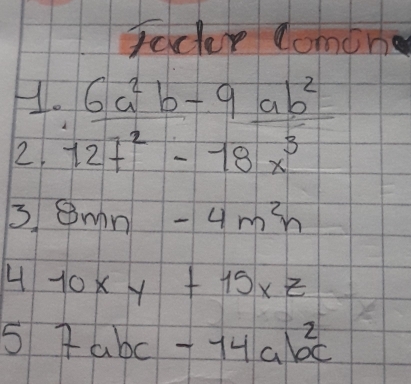 Factor Común
1. 6a²b - 9ab²
2. 12t² - 18x³
3. 8mn - 4m²n
4 10xy + 15xz
5 7abc - 14ab²c